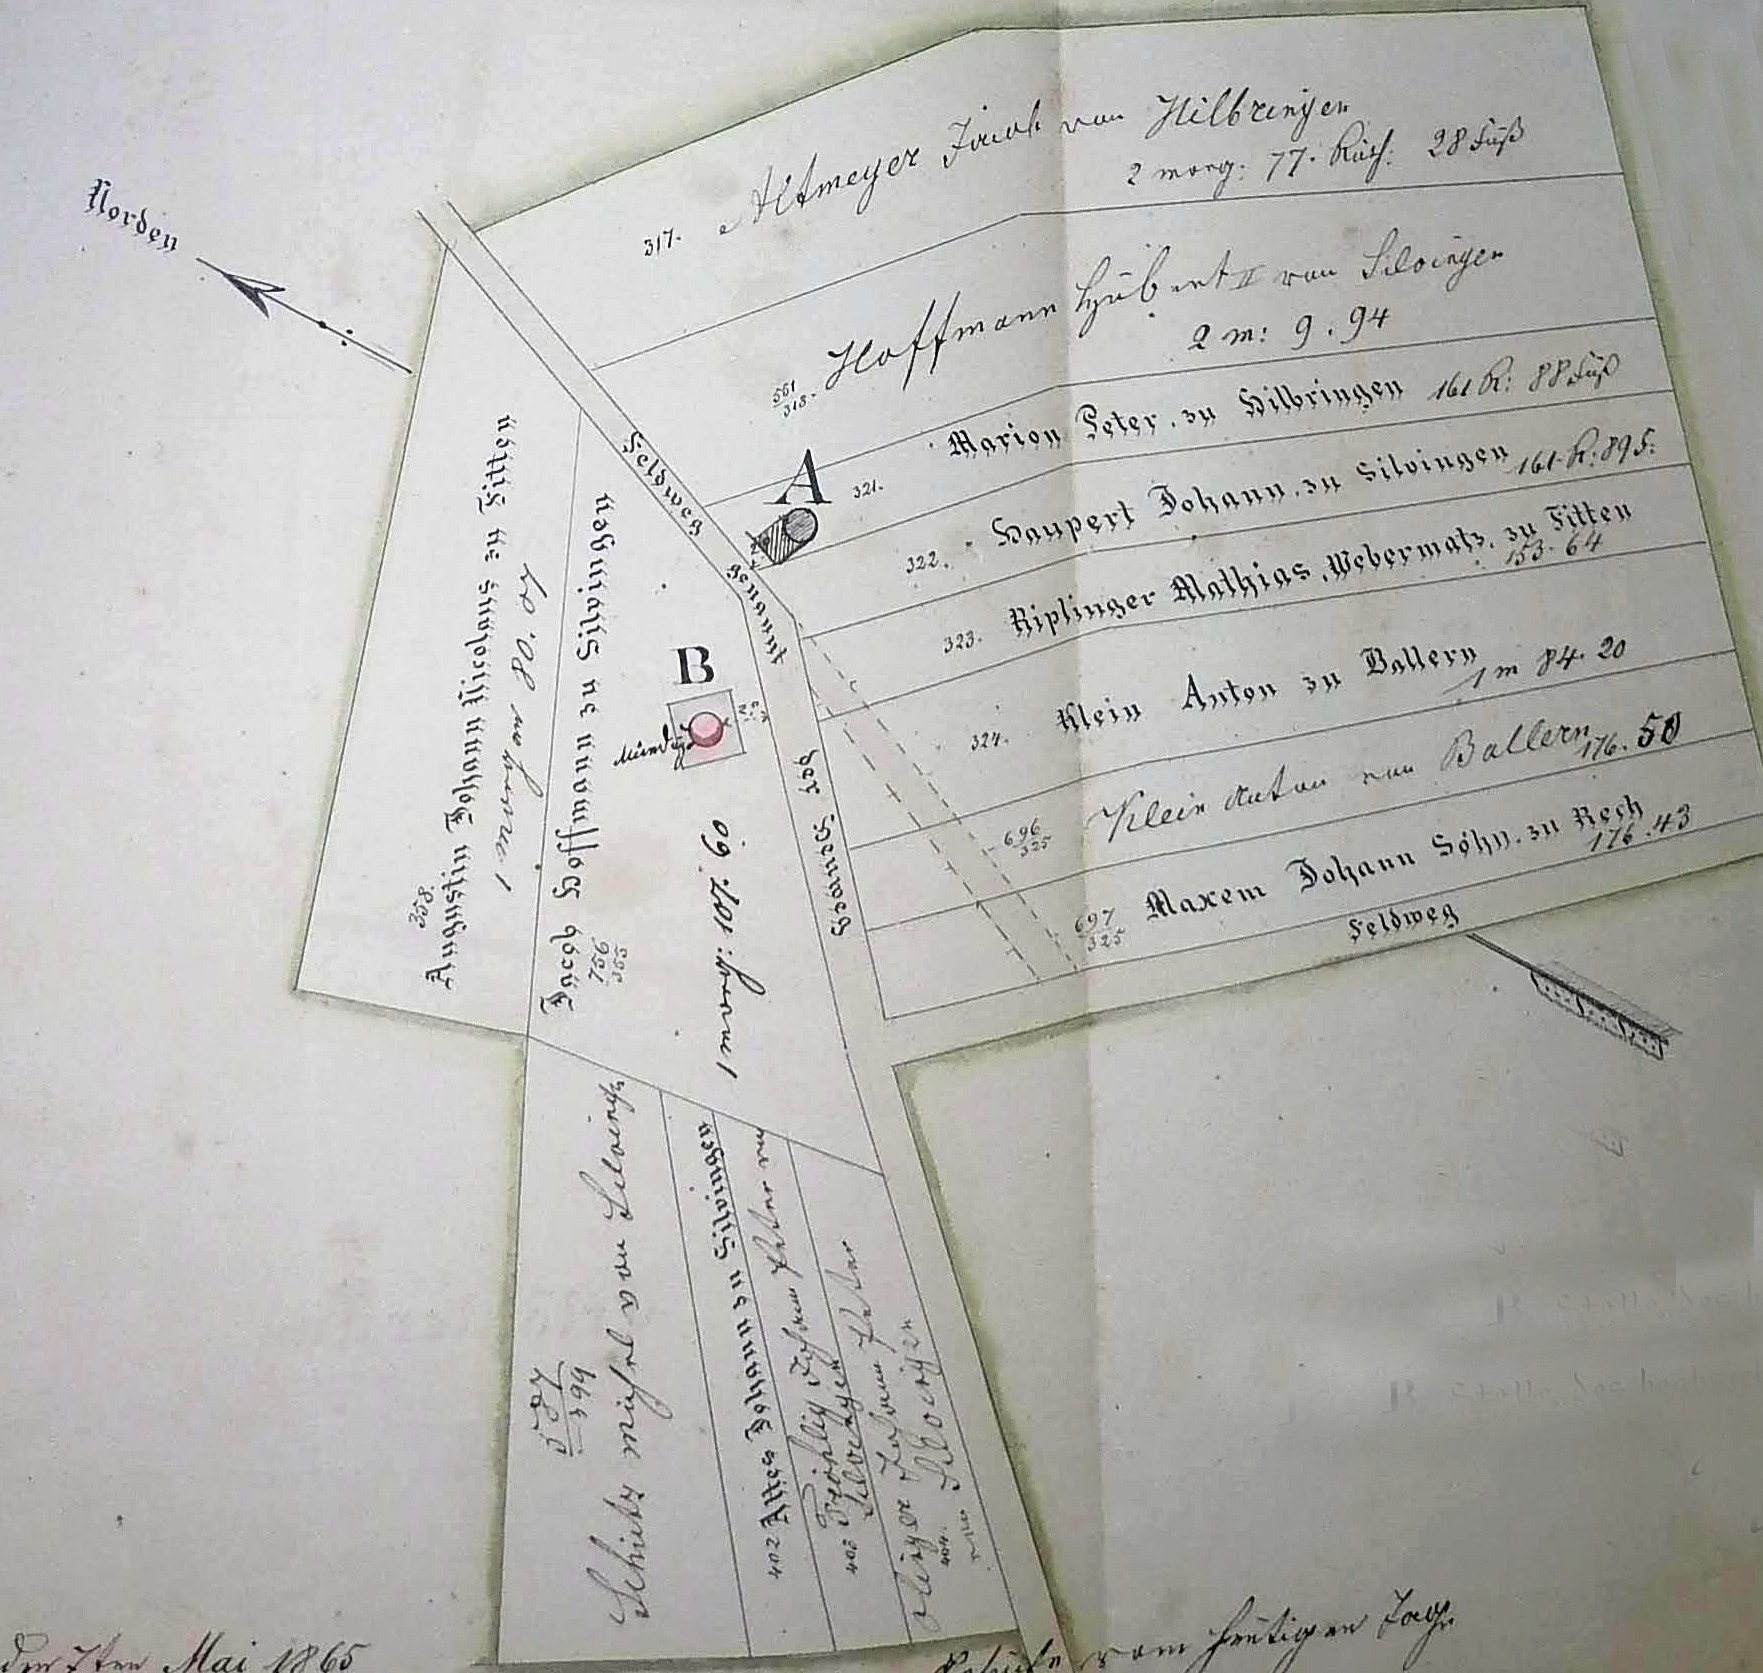 Norden
317. Altmeyer Jacob von Hilbringen
2 morg: 77. Ruth: 28 Fuß
561/318. Hoffmann Hubert II von Silvingen
2 m: 9. 94
321. Marion Peter. zu Hilbringen 161 R: 88 Fuß
322. Haupert Johann. zu Silvingen 161. R: 895:
323. Riplinger Mathias, Webermatz. zu Fitten
153. 64
324. Klein Anton zu Ballern
1 m 84. 20
696/325 Klein Anton von Ballern
176. 50
697/325 Maxem Johann Söhn. zu Rech
176. 43
Feldweg
Feldweg genannt der Grauweg
A
B
358.
Augustin Johann Nicolaus zu Fitten
1 morgen 80. 04
Jacob Hoffmann zu Silvingen
756/355
1 morg: 107. 60
Schütz Michel von Silvingen
402 Altes Johann zu Silvingen
403 Fröhlig Johann Peter von
Silvingen
404. Johann Peter
Silvingen
den 7ten Mai 1865
vom heutigen Tage